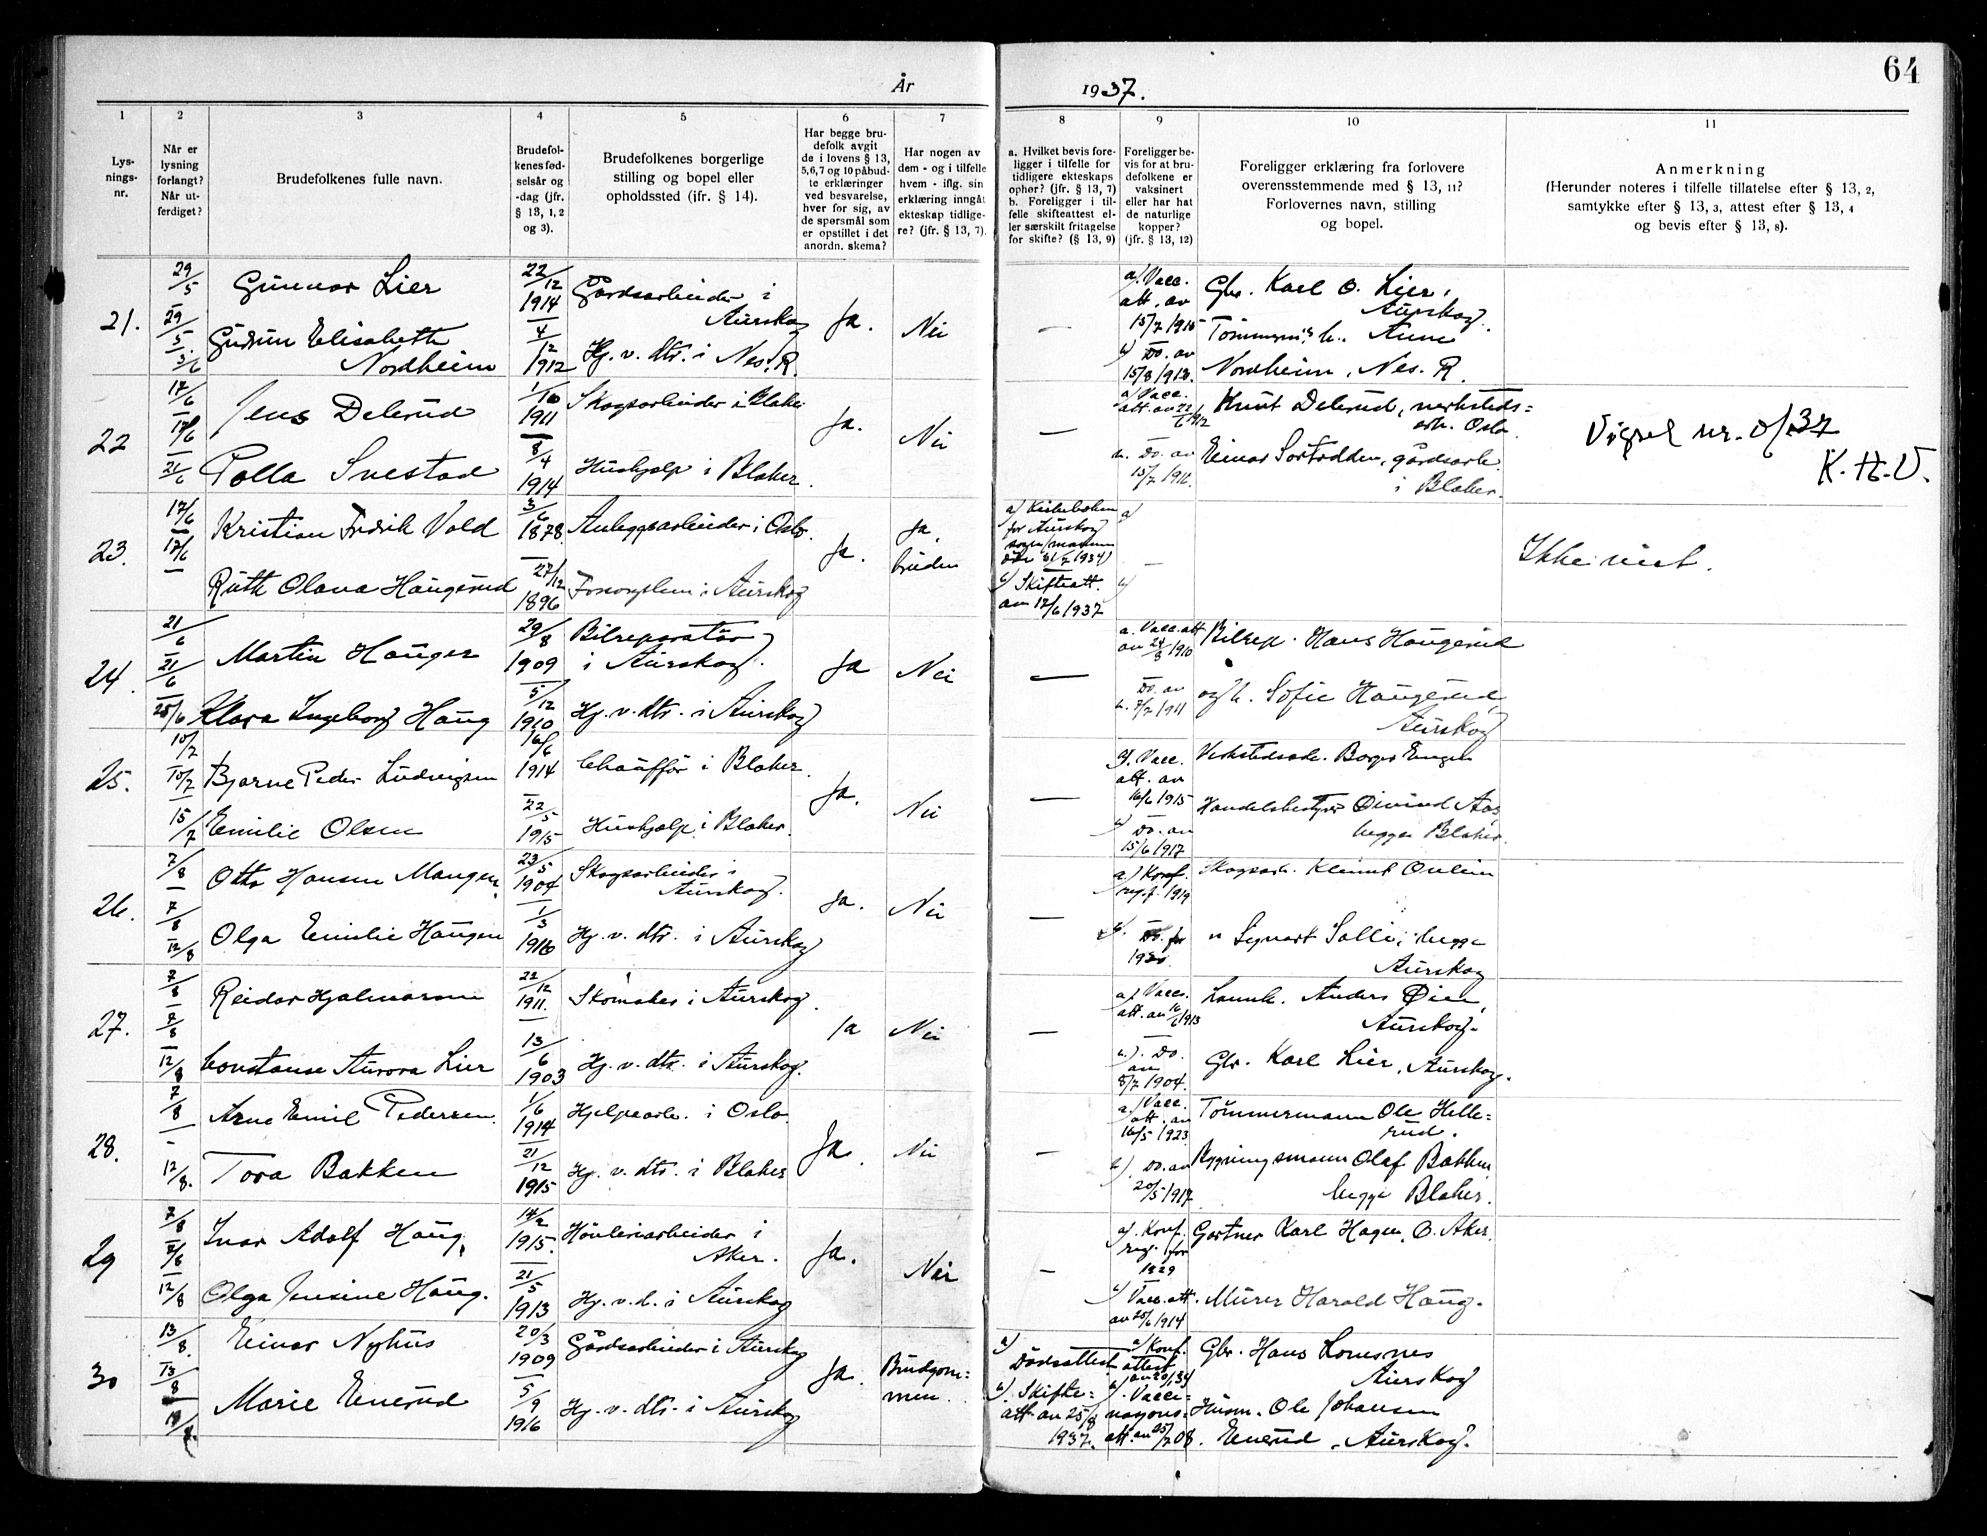 64
År
1937.
1
2
3
4
5
6
7
8
9
10
11
Lys-
nings-
nr.
Når er
lysning
forlangt?
Når ut-
ferdiget?
Brudefolkenes fulle navn.
Brudefol-
kenes fød-
selsår og
-dag (jfr.
§ 13, 1, 2
og 3).
Brudefolkenes borgerlige
stilling og bopel eller
opholdssted (jfr. § 14).
Har begge bru-
defolk avgit
de i lovens § 13,
5,6,7 og 10 påbud-
te erklæringer
ved besvarelse,
hver for sig, av
de spørsmål som
er opstillet i det
anordn. skema?
Har nogen av
dem - og i tilfelle
hvem - iflg. sin
erklæring inngåt
ekteskap tidlige-
re? (jfr. § 13, 7).
a. Hvilket bevis fore-
ligger i tilfelle for
tidligere ekteskaps
ophør? (jfr. § 13, 7)
b. Foreligger i til-
felle skifteattest el-
ler særskilt fritagelse
for skifte? (§ 13, 9)
Foreligger be-
vis for at bru-
defolkene er
vaksinert
eller har hat
de naturlige
kopper?
(jfr. § 13, 12)
Foreligger erklæring fra forlovere
overensstemmende med § 13, 11?
Forlovernes navn, stilling
og bopel.
Anmerkning
(Herunder noteres i tilfelle tillatelse efter § 13, 2,
samtykke efter § 13, 3, attest efter § 13, 4
og bevis efter § 13, 8).
21.
29/5
29/5
Gunnar Lier
Gudrun Elisabeth
Nordheim
22/12
1914
4/12
1912
Gårdsarbeider i
Aurskog
Hj. v. dtr. i Nes. R.
Ja.
Nei
—
a/ Vacc.
att. av
15/7 1915
b) Do. av
15/8 1913.
Gbr. Karl O. Lier,
Aurskog.
Nordheim, Nes. R.
22
17/6
17/6
21/6
Jens Delerud
Polla Svestad
1/10
1911
8/4
1914
Skogsarbeider i Blaker
Hushjelp i Blaker.
Ja.
Nei
—
a) Vacc.
att. av 22/6 1912
b. Do. av
15/7 1916.
Knut Delerud, verksteds=
arb. Oslo.
Einar Sortodden, gårdsarb.
i Blaker.
K. H. V.
23.
17/6
17/6
Kristian Fredrik Vold
Ruth Olava Haugerud
3/6
1878.
27/12
1896
Anleggsarbeider i Oslo.
i Aurskog
Ja.
Ja,
bruden
a) Kirkeboken
for Aurskog
b) Skifteatt.
av 17/6 1937
a)
—
b)
Ikke viet.
24.
21/6
21/6
25/6
Martin Hauger
Klara Ingeborg Haug
29/8
1909
5/12
1910
Bilreparatør
i Aurskog.
Hj. v. dtr. i Aurskog
Ja
Nei
—
a. Vacc. att
av 24/8 1910
Do. av
b. 7/7 1911
Bilrep. Hans Haugerud
og h. Sofie Haugerud,
Aurskog
25.
10/7
10/7
15/7
Bjarne Peder Ludvigsen
Emilie Olsen
16/6
1914
22/5
1915
Chauffør i Blaker.
Hushjelp i Blaker.
Ja.
Nei
—
a. Vacc.
att. av
16/6 1915
b) Do. av
15/6 1917
Verkstedsarb. Borger Engen
Handelsbestyrer Øivind Aas,
begge Blaker.
26.
7/8
7/8
12/8
Otto Hansen Mangen,
Olga Emilie Haugen
23/5
1904
1/3
1916
Skogsarbeider i
Aurskog.
Hj. v. dtr. i Aurskog
Ja.
Nei
—
a.) Konf.
reg. f. 1919
b. Do. for
Skogsarb. Klemet
" Sigvart Sølli, begge
Aurskog
27.
7/8
7/8
12/8
Reidar Hjalmarsen
Constanse Aurora Lier
22/12
1911.
13/6
1903
Skomaker i Aurskog.
Hj. v. dtr. i Aurskog.
Ja
Nei
—
a.) Vacc.
att. av 16/6 1913
b.) Do.
av
8/7 1904.
Anders Øien,
Aurskog.
Gbr. Karl Lier, Aurskog.
28.
7/8
-
12/8.
Arne Emil Pedersen.
Tora Bakken
1/6
1914
21/12
1915
Hjelpearb. i Oslo.
Hj. v. dtr. i Blaker
Ja.
Nei
—
a.) Vacc.
att. av
16/5 1923
b.) Do. av
20/5 1917
Tømmermann Ole Helle=
rud.
Bygningsmann Olaf Bakken
begge Blaker.
29
7/8
7/6
12/8
Ivar Adolf Haug,
Olga Jensine Haug.
14/2
1915.
21/5
1913
Høvleriarbeider i
Aker.
Hj. v. d. i Aurskog
Ja.
Nei
—
a). Konf.
reg. for
1929
b) Vacc. att.
av 25/6 1914
Gartner Karl Hagen, Ø. Aker.
Murer Harald Haug.
30
13/8.
13/8
Einar Nyhus
Marie Enerud
20/3
1909
5/9
1916
Gårdsarbeider i Aurskog
Hj. v. dtr. i Aurskog
Ja.
Brudgom=
men.
a)
Dødsattest
b). Skifte=
att. av 25/8
1937.
a) Konf.
attest
b). Vacci=
nasjons-
att. av 25/7 08.
Gbr. Hans Lomsnes
Aurskog
Husm. Ole Johansen
Enerud, Aurskog.